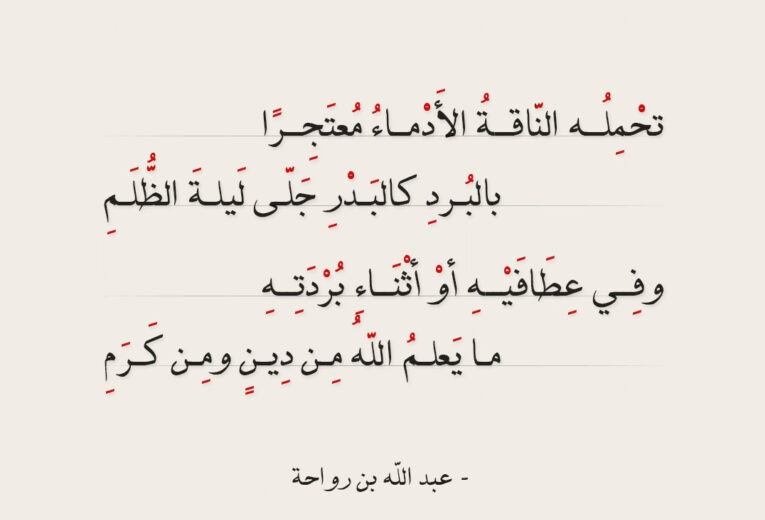 تحْمِلُـــه النّاقــةُ الأَدْمــاءُ مُعتَجِــرًا
بالبُــردِ كالبَــدْرِ جَلّــى لَيلــةَ الظُّلَــمِ
وفِــي عِطَافَيْـــهِ أوْ أثْنَــاءِ بُرْدَتِــهِ
مـا يَعلــمُ اللّهُ مِــن دِيــنٍ ومِــن كَــرَمِ
- عبد اللّه بن رواحة